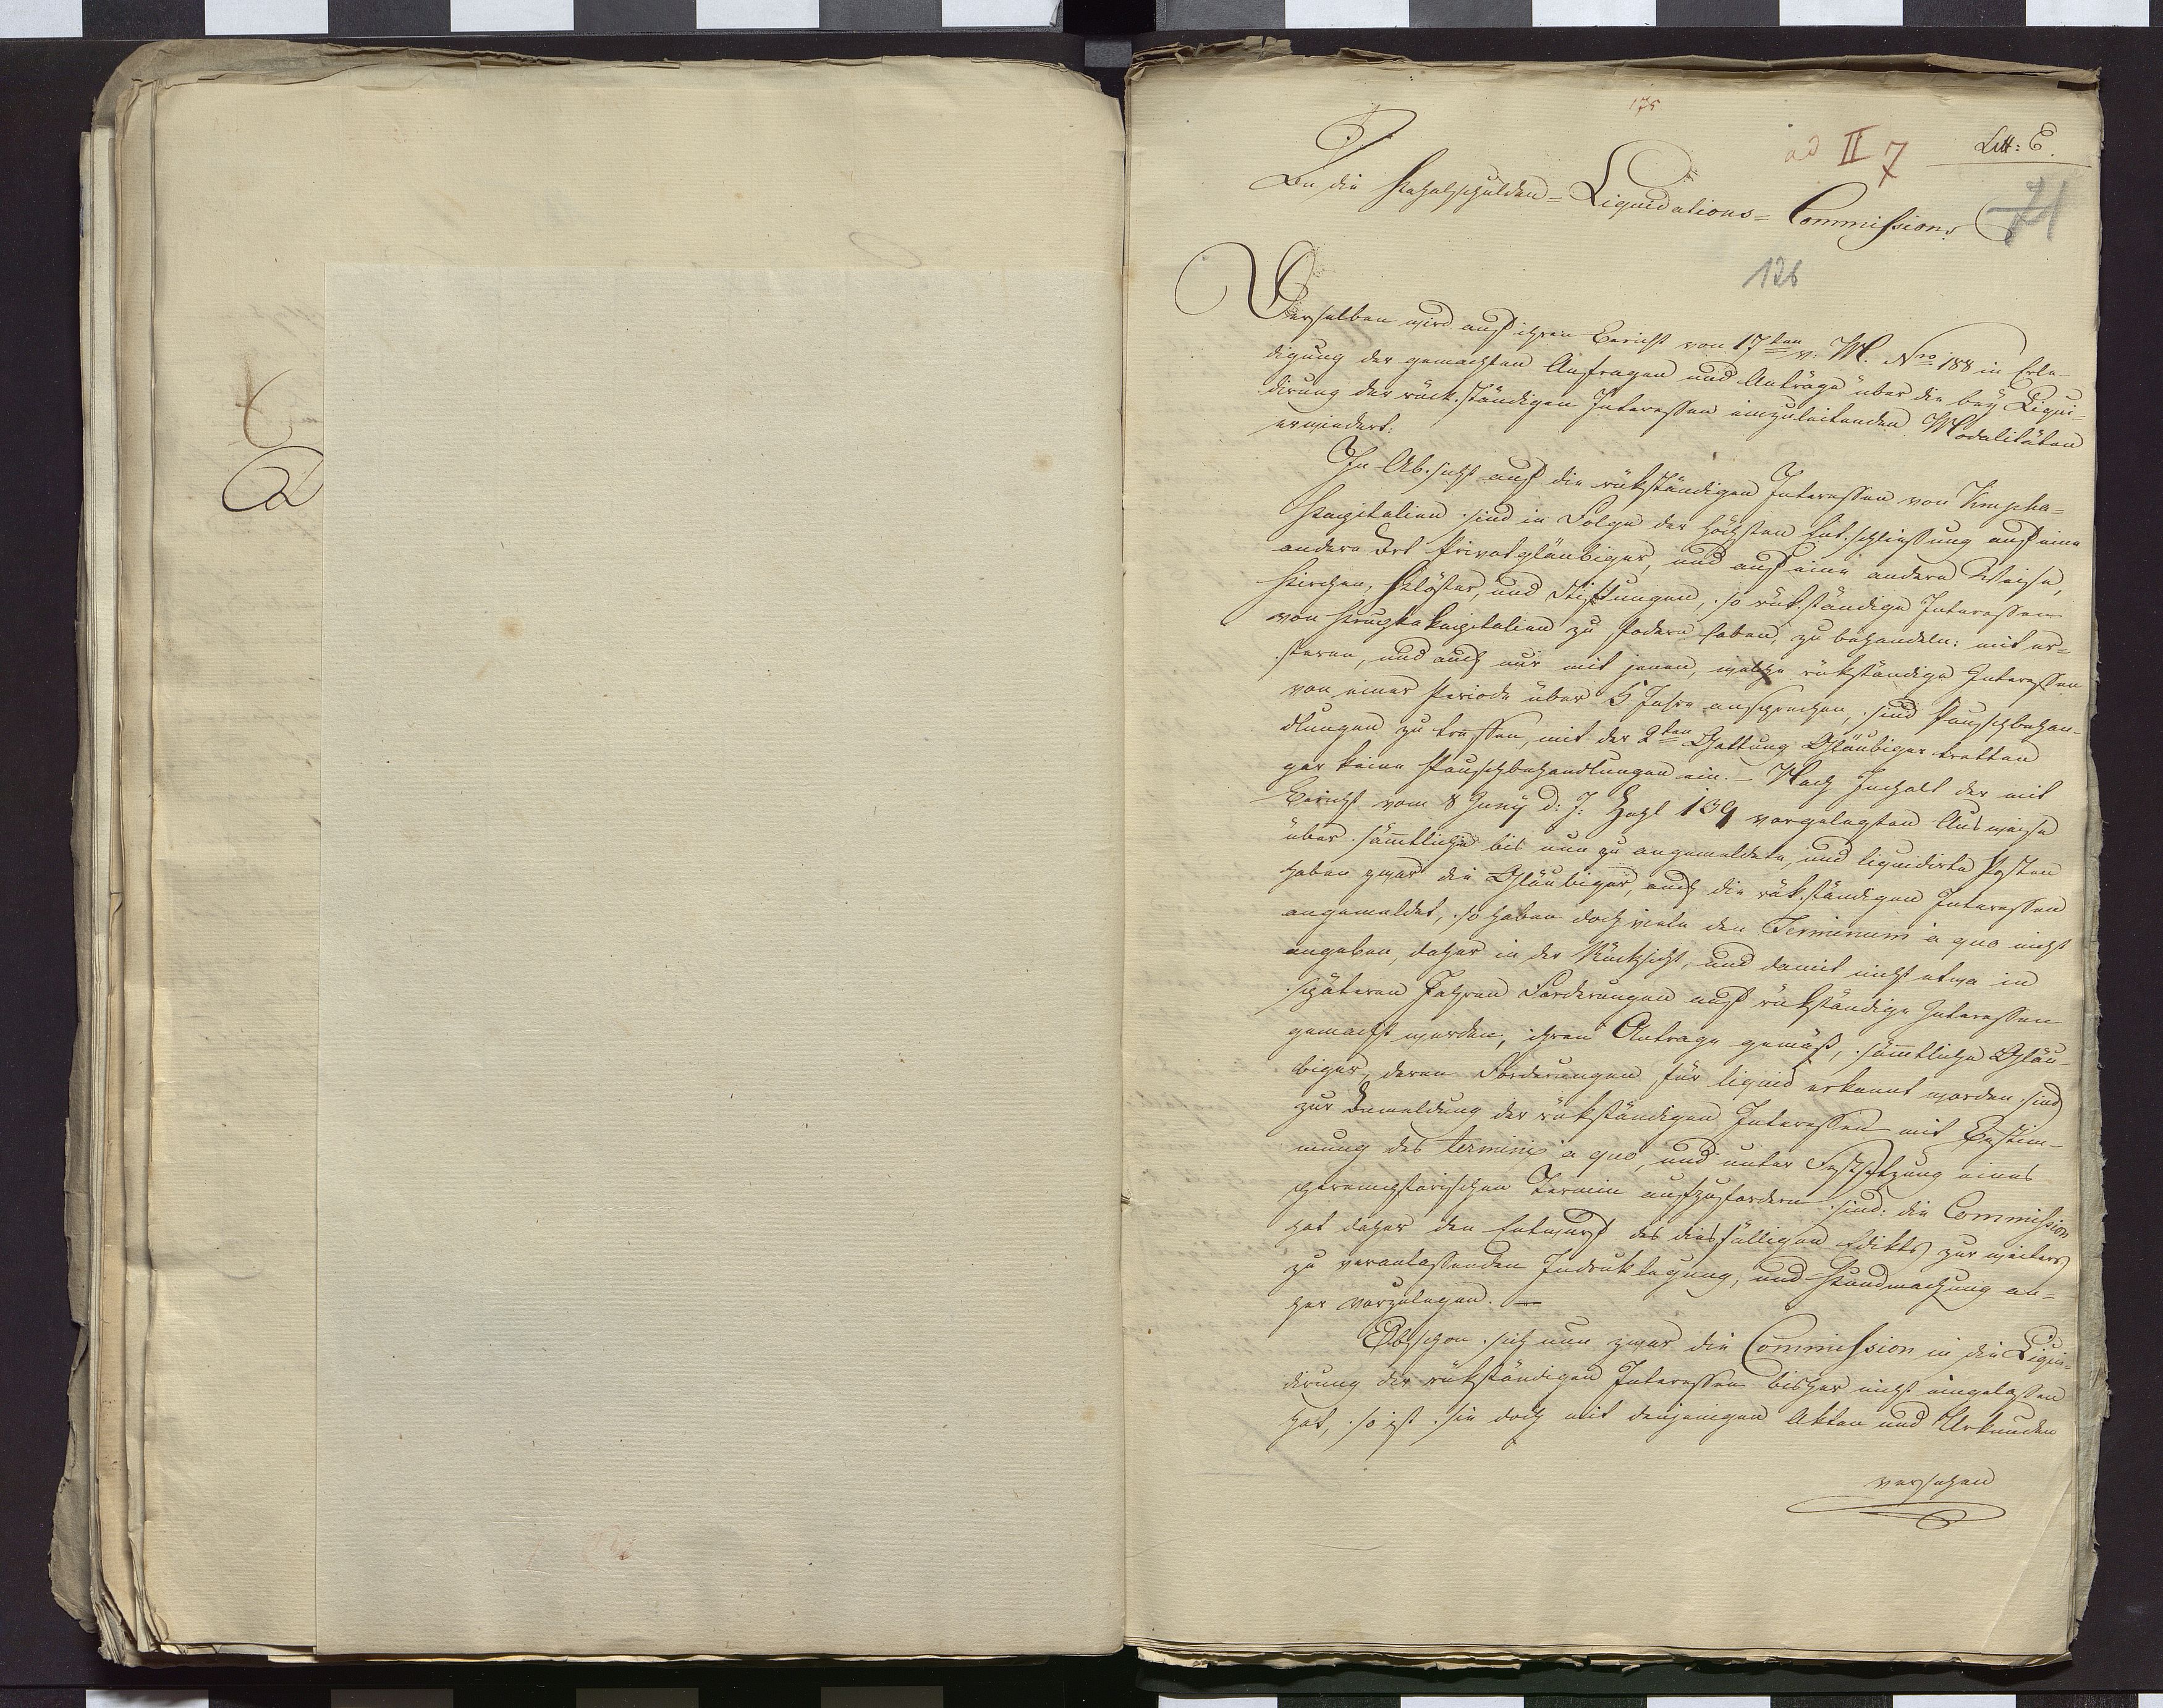 175
ad II 7
Litt: E.
An die Kahalschulden-Liquidations-Commission.
71
126
Derselben wird auf ihren Bericht von 17ten v: M. Nro 188 in Erle-
digung der gemachten Anfragen und Anträge über die bey Liqui-
dirung der rück.ständigen Interessen einzuleitenden Modalitäten
erwiedert:
In Absicht auf die rükständigen Interessen von Krupka-
Kapitalien sind in Folge der höchsten Entschliessung auf eine
andere Art Privatgläubiger, und auf eine andere Weise,
Kirchen, Klöster, und Stiftungen, so rükständige Interessen
von Krupka Kapitalien zu fodern haben, zu behandeln: mit er-
steren, und auch nur mit jenen, welche rükständige Interessen
von einer Periode über 5 Jahre ansprechen, sind Pauschbehan-
dlungen zu treffen, mit der 2ten Gattung Gläubiger tretten
gar keine Pauschbehandlungen ein. – Nach Inhalt der mit
Bericht vom 8 Juny d: J: Zahl 139 vorgelegten Ausweise
über sämtliche bis nun zu angemeldete, und liquidirte Posten
haben zwar die Gläubiger, auch die rükständigen Interessen
angemeldet, so haben doch viele den Terminum a quo nicht
angeben, daher in der Rücksicht, und damit nicht etwa in
späteren Jahren Forderungen auf rükständige Interessen
gemacht werden, ihren Antrage gemäß, sämtliche Gläu-
biger, deren Forderungen für liquid erkannt worden sind
zur Anmeldung der rükständigen Interessen mit Bestim-
mung des termini a quo, und unter Festsetzung eines
peremptorischen Termin aufzufordern sind: die Commission
hat daher den Entwurf des diesfälligen Edikts zur weiters
zu veranlassenden Indruklegung, und Kundmachung an-
her vorzulegen. —
Obschon sich nun zwar die Commission in die Liqui-
dirung der rükständigen Interessen bisher nicht eingelassen
hat, so ist sie doch mit denjenigen Akten und Urkunden
versehen